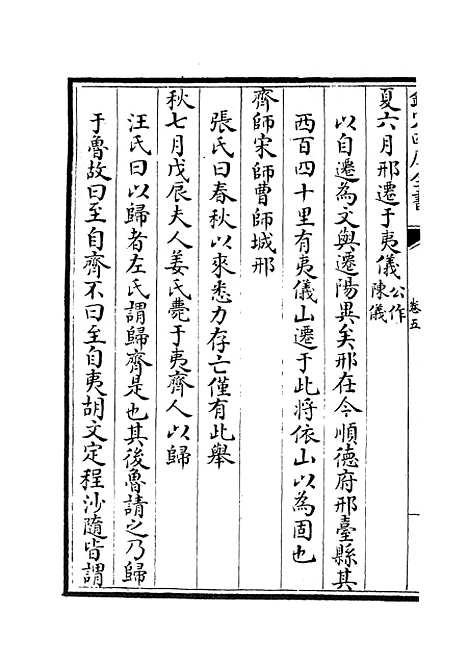 欽定四庫全書
卷五
夏六月邢遷于夷儀公作陳儀
以自遷為文與遷陽異矣邢在今順德府邢臺縣其
西百四十里有夷儀山遷于此將依山以為固也
齊師宋師曹師城邢
張氏曰春秋以來悉力存亡僅有此舉
秋七月戊辰夫人姜氏薨于夷齊人以歸
汪氏曰以歸者左氏謂歸齊是也其後魯請之乃歸
于魯故曰至自齊不曰至自夷胡文定程沙隨皆謂